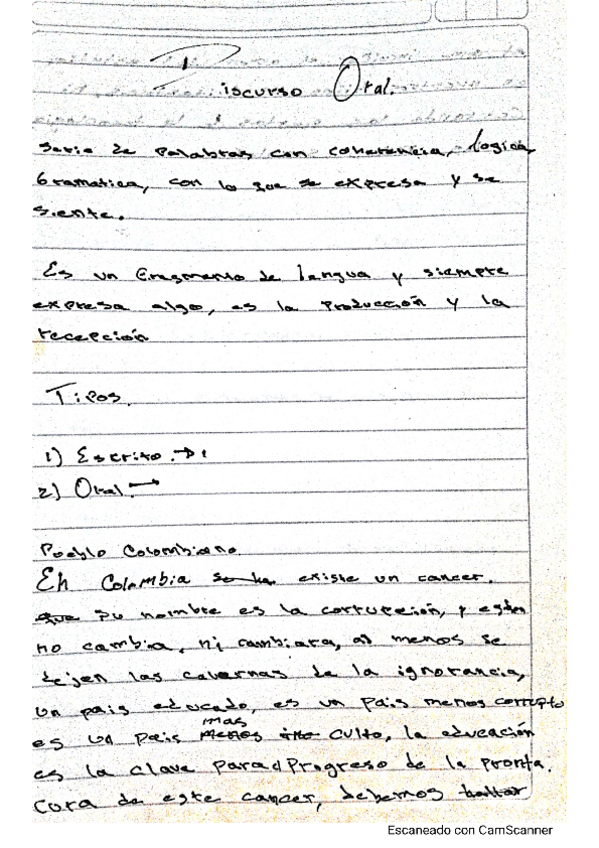 Discurso Oral.
Serie de Palabras con coherencia, logica,
Gramatica, con lo que se expresa y se
siente.
Es un fragmento de lengua y siempre
expresa algo, es la Producción y la
recepción
Tipos.
1) Escrito →
2) Oral →
Pueblo Colombiano
En Colombia existe un cancer.
que su nombre es la corrupción, y
no cambia, ni cambiara, al menos se
dejen las cavernas de la ignorancia,
un pais educado, es un Pais menos corrupto
es un Pais mas culto, la educación
es la clave para Progreso de la pronta
cura de este cancer, debemos
Escaneado con CamScanner